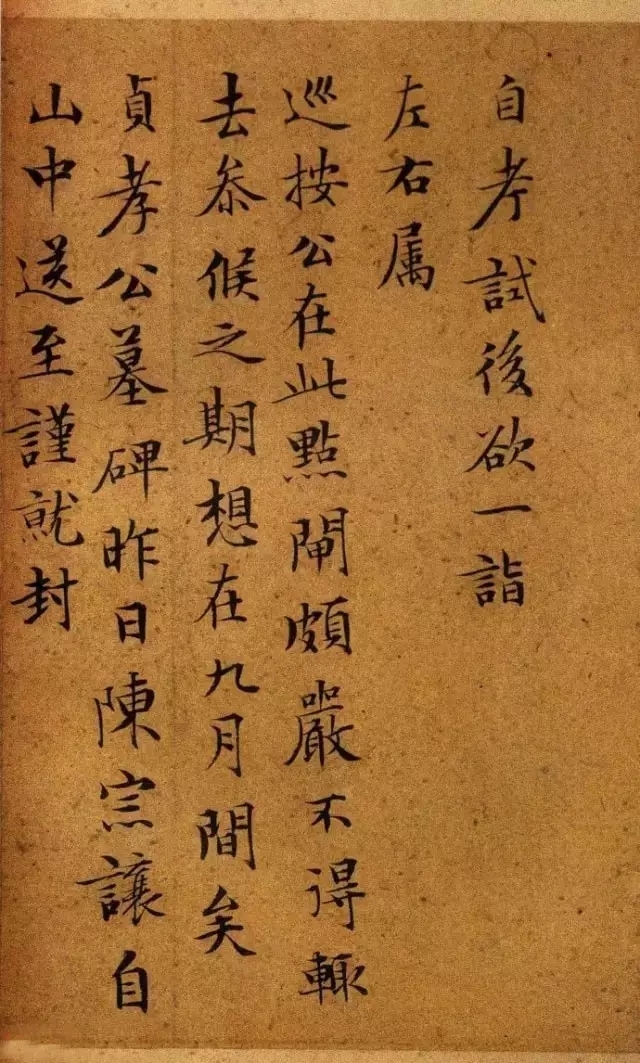 自考試後欲一詣
左右属
巡按公在此點閘頗嚴不得輙
去叅候之期想在九月間矣
貞孝公墓碑昨日陳宗讓自
山中送至謹就封